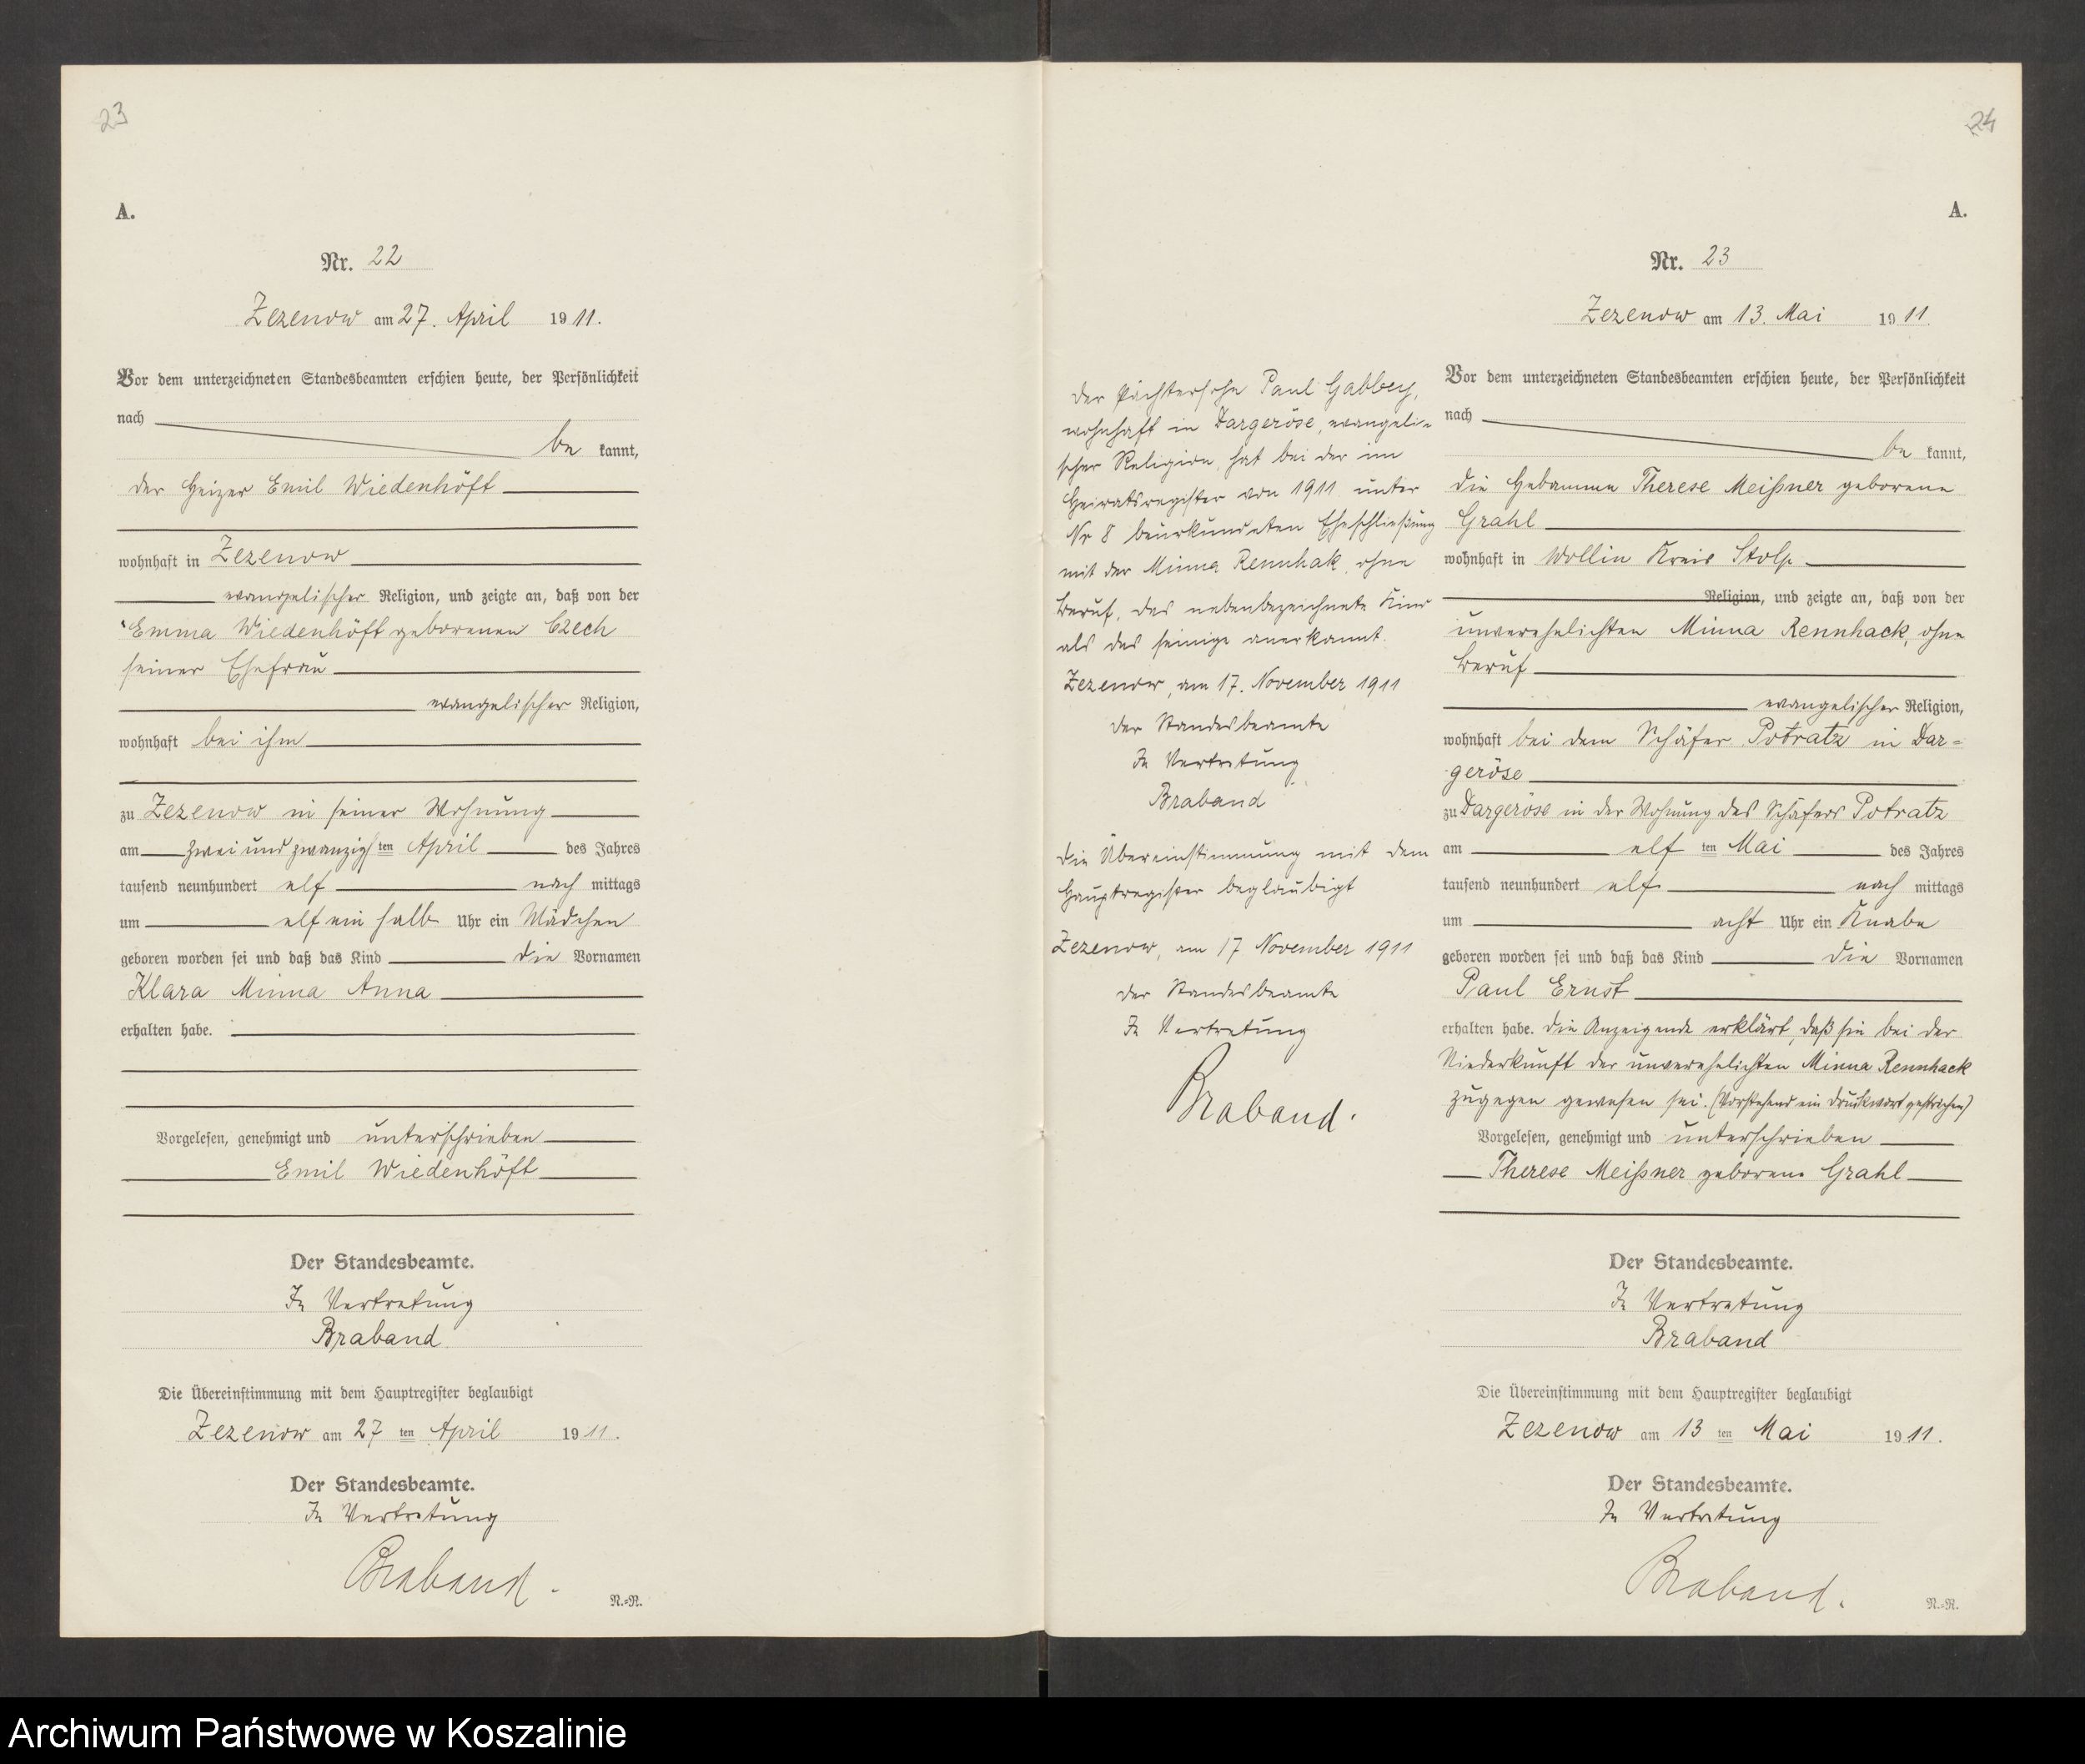 23
A.
Nr. 22
Zezenow am 27. April 1911.
Vor dem unterzeichneten Standesbeamten erschien heute, der Persönlichkeit
nach
be kannt,
der Heizer Emil Wiedenhöft
wohnhaft in Zezenow
evangelischer Religion, und zeigte an, daß von der
Emma Wiedenhöft geborenen Czech
seiner Ehefrau
evangelischer Religion,
wohnhaft bei ihm
zu Zezenow in seiner Wohnung
am zwei und zwanzigsten April des Jahres
tausend neunhundert elf nach mittags
um elf ein halb Uhr ein Mädchen
geboren worden sei und daß das Kind die Vornamen
Klara Minna Anna
erhalten habe.
Vorgelesen, genehmigt und unterschrieben
Emil Wiedenhöft
Der Standesbeamte.
In Vertretung
Braband
Die Übereinstimmung mit dem Hauptregister beglaubigt
Zezenow am 27 ten April 1911.
Der Standesbeamte.
In Vertretung
Braband.
N.=R.
24
A.
Der Pächtersohn Paul Gabbey,
wohnhaft in Dargeröse, evangeli=
scher Religion, hat bei der im
Heiratsregister von 1911 unter
Nr 8 beurkundeten Eheschließung
mit der Minna Rennhak, ohne
Beruf, das nebenbezeichnete Kind
als das seinige anerkannt.
Zezenow, am 17. November 1911
Der Standesbeamte
In Vertretung
Braband
Die Übereinstimmung mit dem
Hauptregister beglaubigt
Zezenow, am 17 November 1911
Der Standesbeamte
In Vertretung
Braband.
Nr. 23
Zezenow am 13. Mai 1911.
Vor dem unterzeichneten Standesbeamten erschien heute, der Persönlichkeit
nach
be kannt,
die Hebamme Therese Meißner geborene
Grahl
wohnhaft in Wollin Kreis Stolp
Religion, und zeigte an, daß von der
unverehelichten Minna Rennhack, ohne
Beruf
evangelischer Religion,
wohnhaft bei dem Schäfer Potratz in Dar=
geröse
zu Dargeröse in der Wohnung des Schäfers Potratz
am elf ten Mai des Jahres
tausend neunhundert elf nach mittags
um acht Uhr ein Knabe
geboren worden sei und daß das Kind die Vornamen
Paul Ernst
erhalten habe. Die Anzeigende erklärt, daß sie bei der
Niederkunft der unverehelichten Minna Rennhack
zugegen gewesen sei. (Vorstehend ein Druckwort gestrichen)
Vorgelesen, genehmigt und unterschrieben
Therese Meißner geborene Grahl
Der Standesbeamte.
In Vertretung
Braband
Die Übereinstimmung mit dem Hauptregister beglaubigt
Zezenow am 13 ten Mai 1911.
Der Standesbeamte.
In Vertretung
Braband.
N.=R.
Archiwum Państwowe w Koszalinie